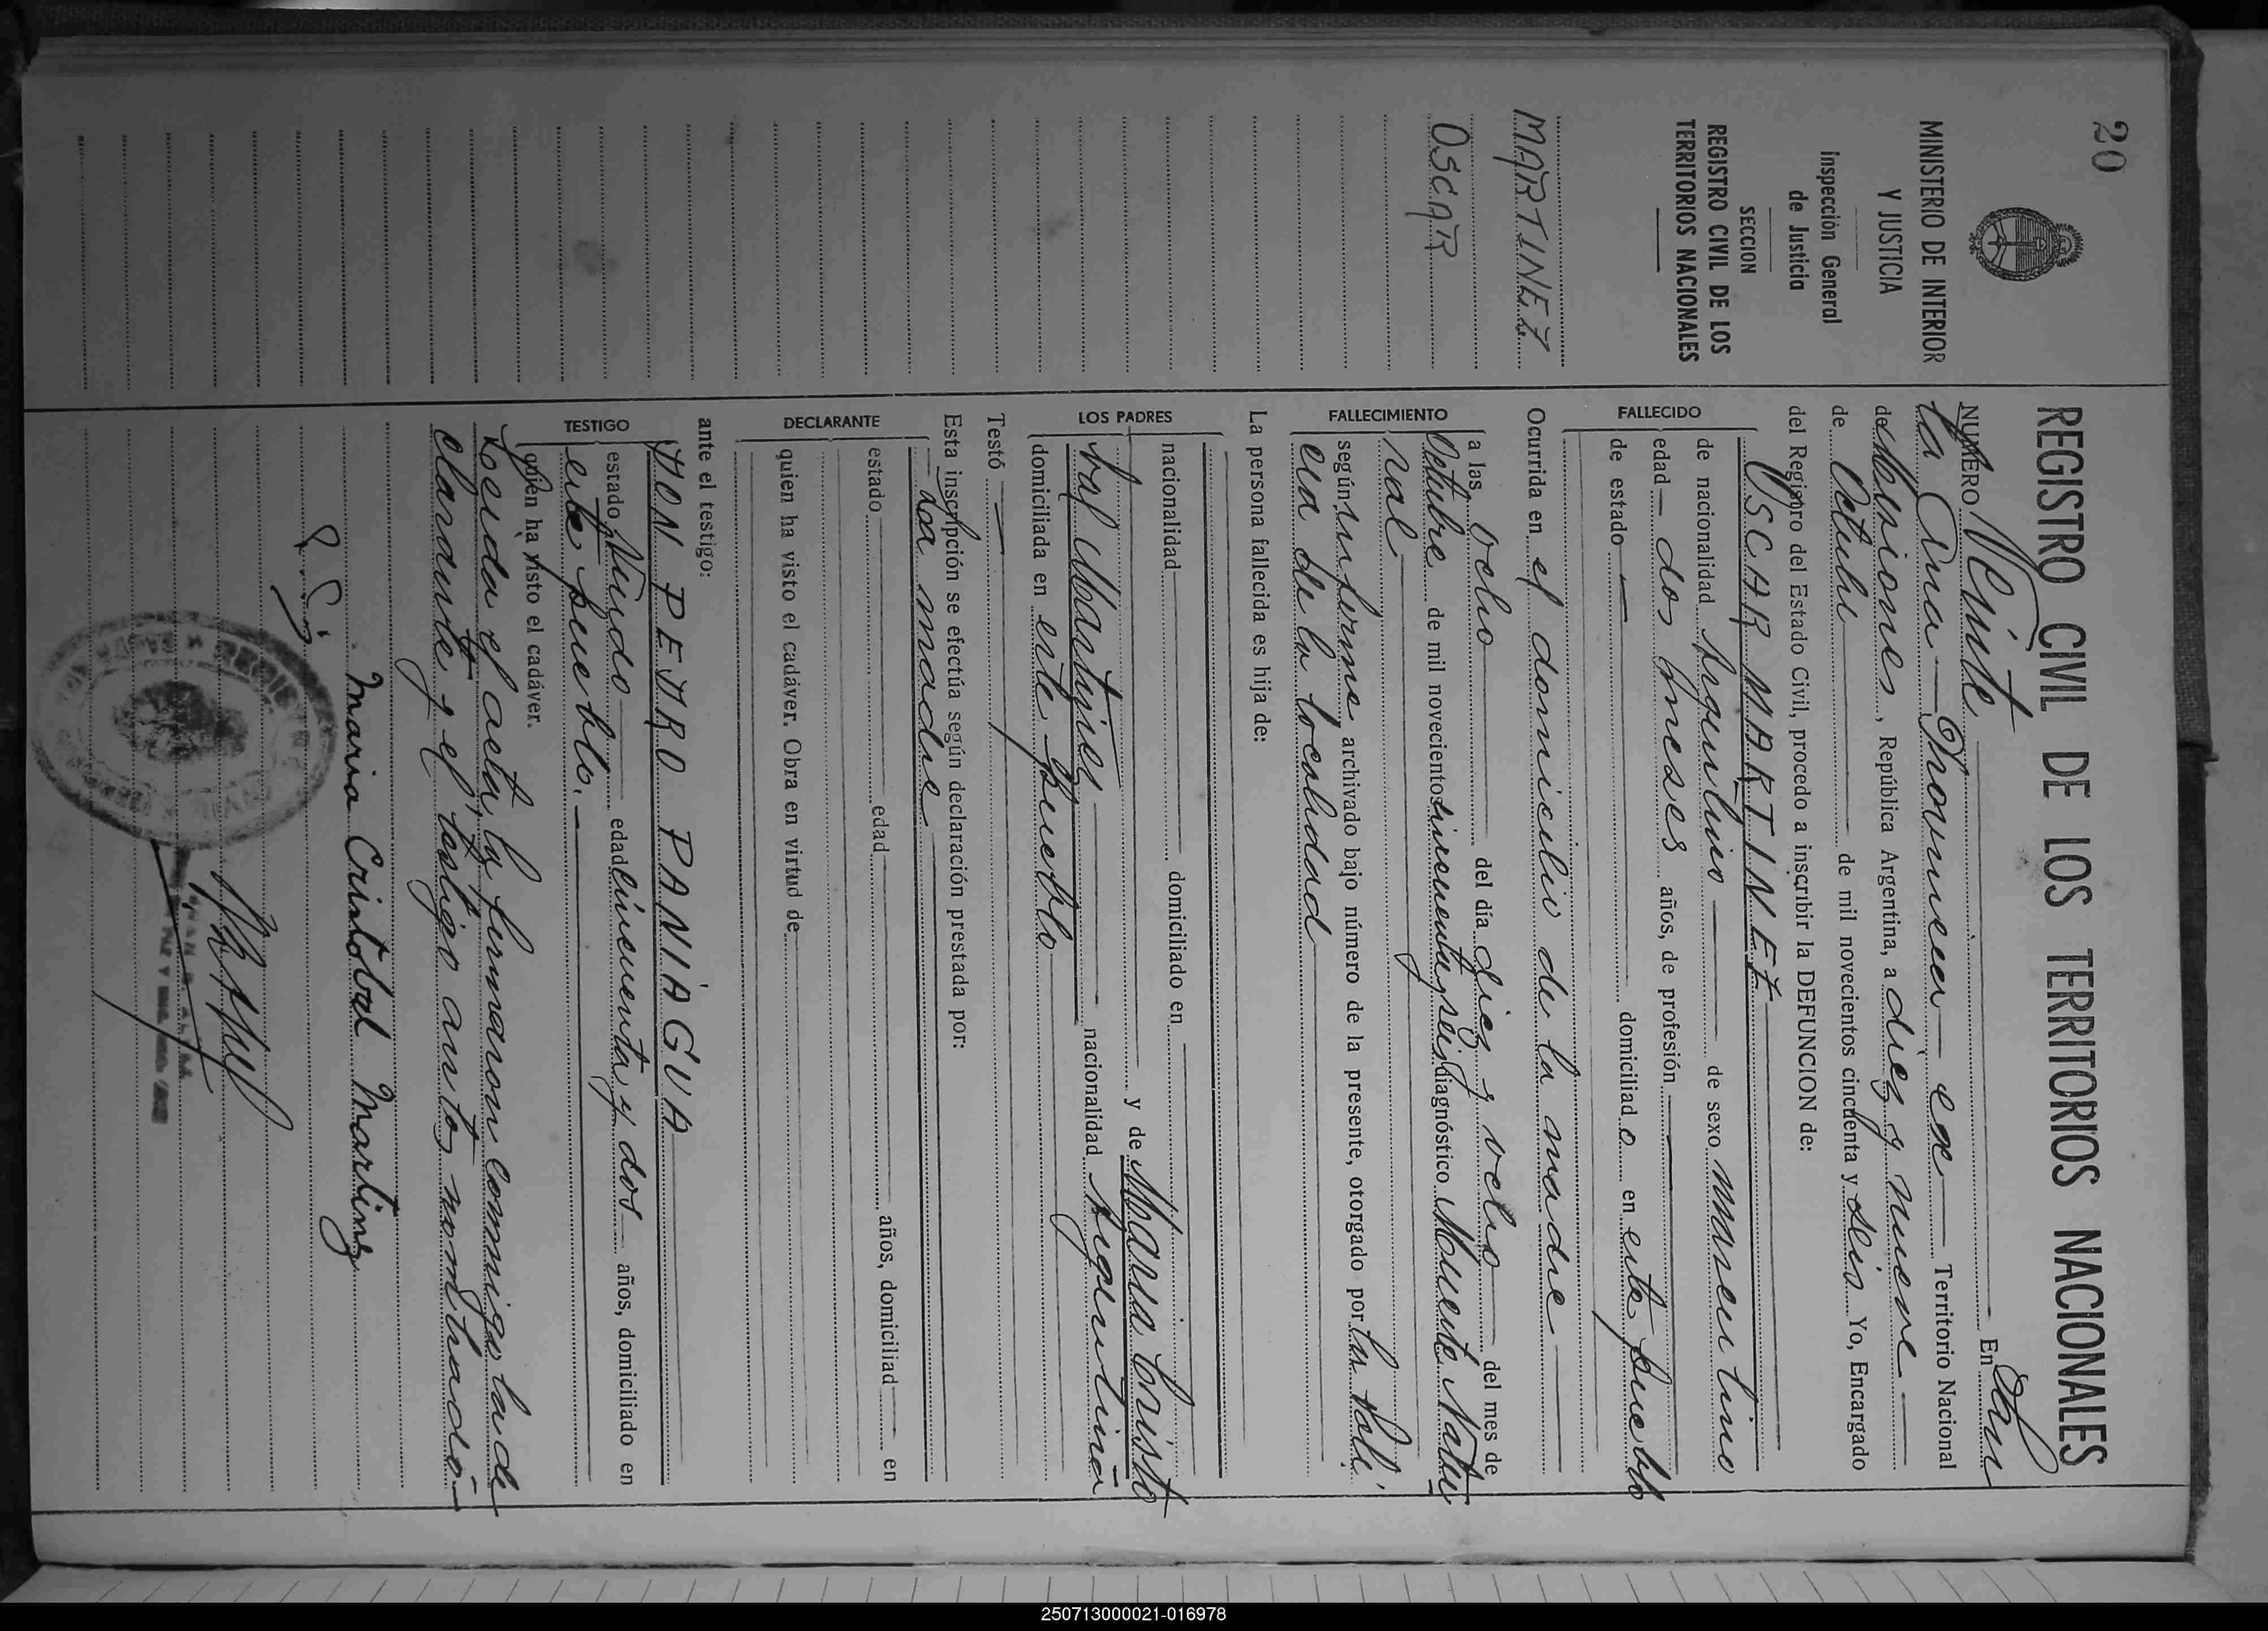 20
MINISTERIO DE INTERIOR
Y JUSTICIA
Inspección General
de Justicia
SECCION
REGISTRO CIVIL DE LOS
TERRITORIOS NACIONALES
MARTINEZ
OSCAR
REGISTRO CIVIL DE LOS TERRITORIOS NACIONALES
NUMERO Veinte En San
ta Ana — Provincia — ex — Territorio Nacional
de Misiones, República Argentina, a diez y nueve —
de Octubre — de mil novecientos cincuenta y seis Yo, Encargado
del Registro del Estado Civil, procedo a inscribir la DEFUNCION de:
FALLECIDO
OSCAR MARTINEZ —
de nacionalidad Argentino — de sexo masculino
edad — dos meses años, de profesión —
de estado — domiciliado en este pueblo
Ocurrida en el domicilio de la madre —
FALLECIMIENTO
a las ocho — del día diez y ocho — del mes de
Octubre de mil novecientos cincuenta y seis diagnóstico Muerte Natu
ral —
según informe archivado bajo número de la presente, otorgado por la Poli
cia de la localidad
La persona fallecida es hija de:
LOS PADRES
nacionalidad — domiciliado en —
— y de Maria Cristo
bal Martinez — nacionalidad Argentina
domiciliada en este pueblo
Testó —
Esta inscripción se efectúa según declaración prestada por:
DECLARANTE
La madre —
estado — edad — años, domiciliad — en
quien ha visto el cadáver. Obra en virtud de —
ante el testigo:
TESTIGO
DON PEDRO PANIAGUA
estado Viudo — edad cincuenta y dos — años, domiciliado en
este pueblo. —
quien ha visto el cadáver.
Leida el acta, la firmaron conmigo la de
clarante y el testigo antes nombrado —
Maria Cristobal Martinez
250713000021-016978